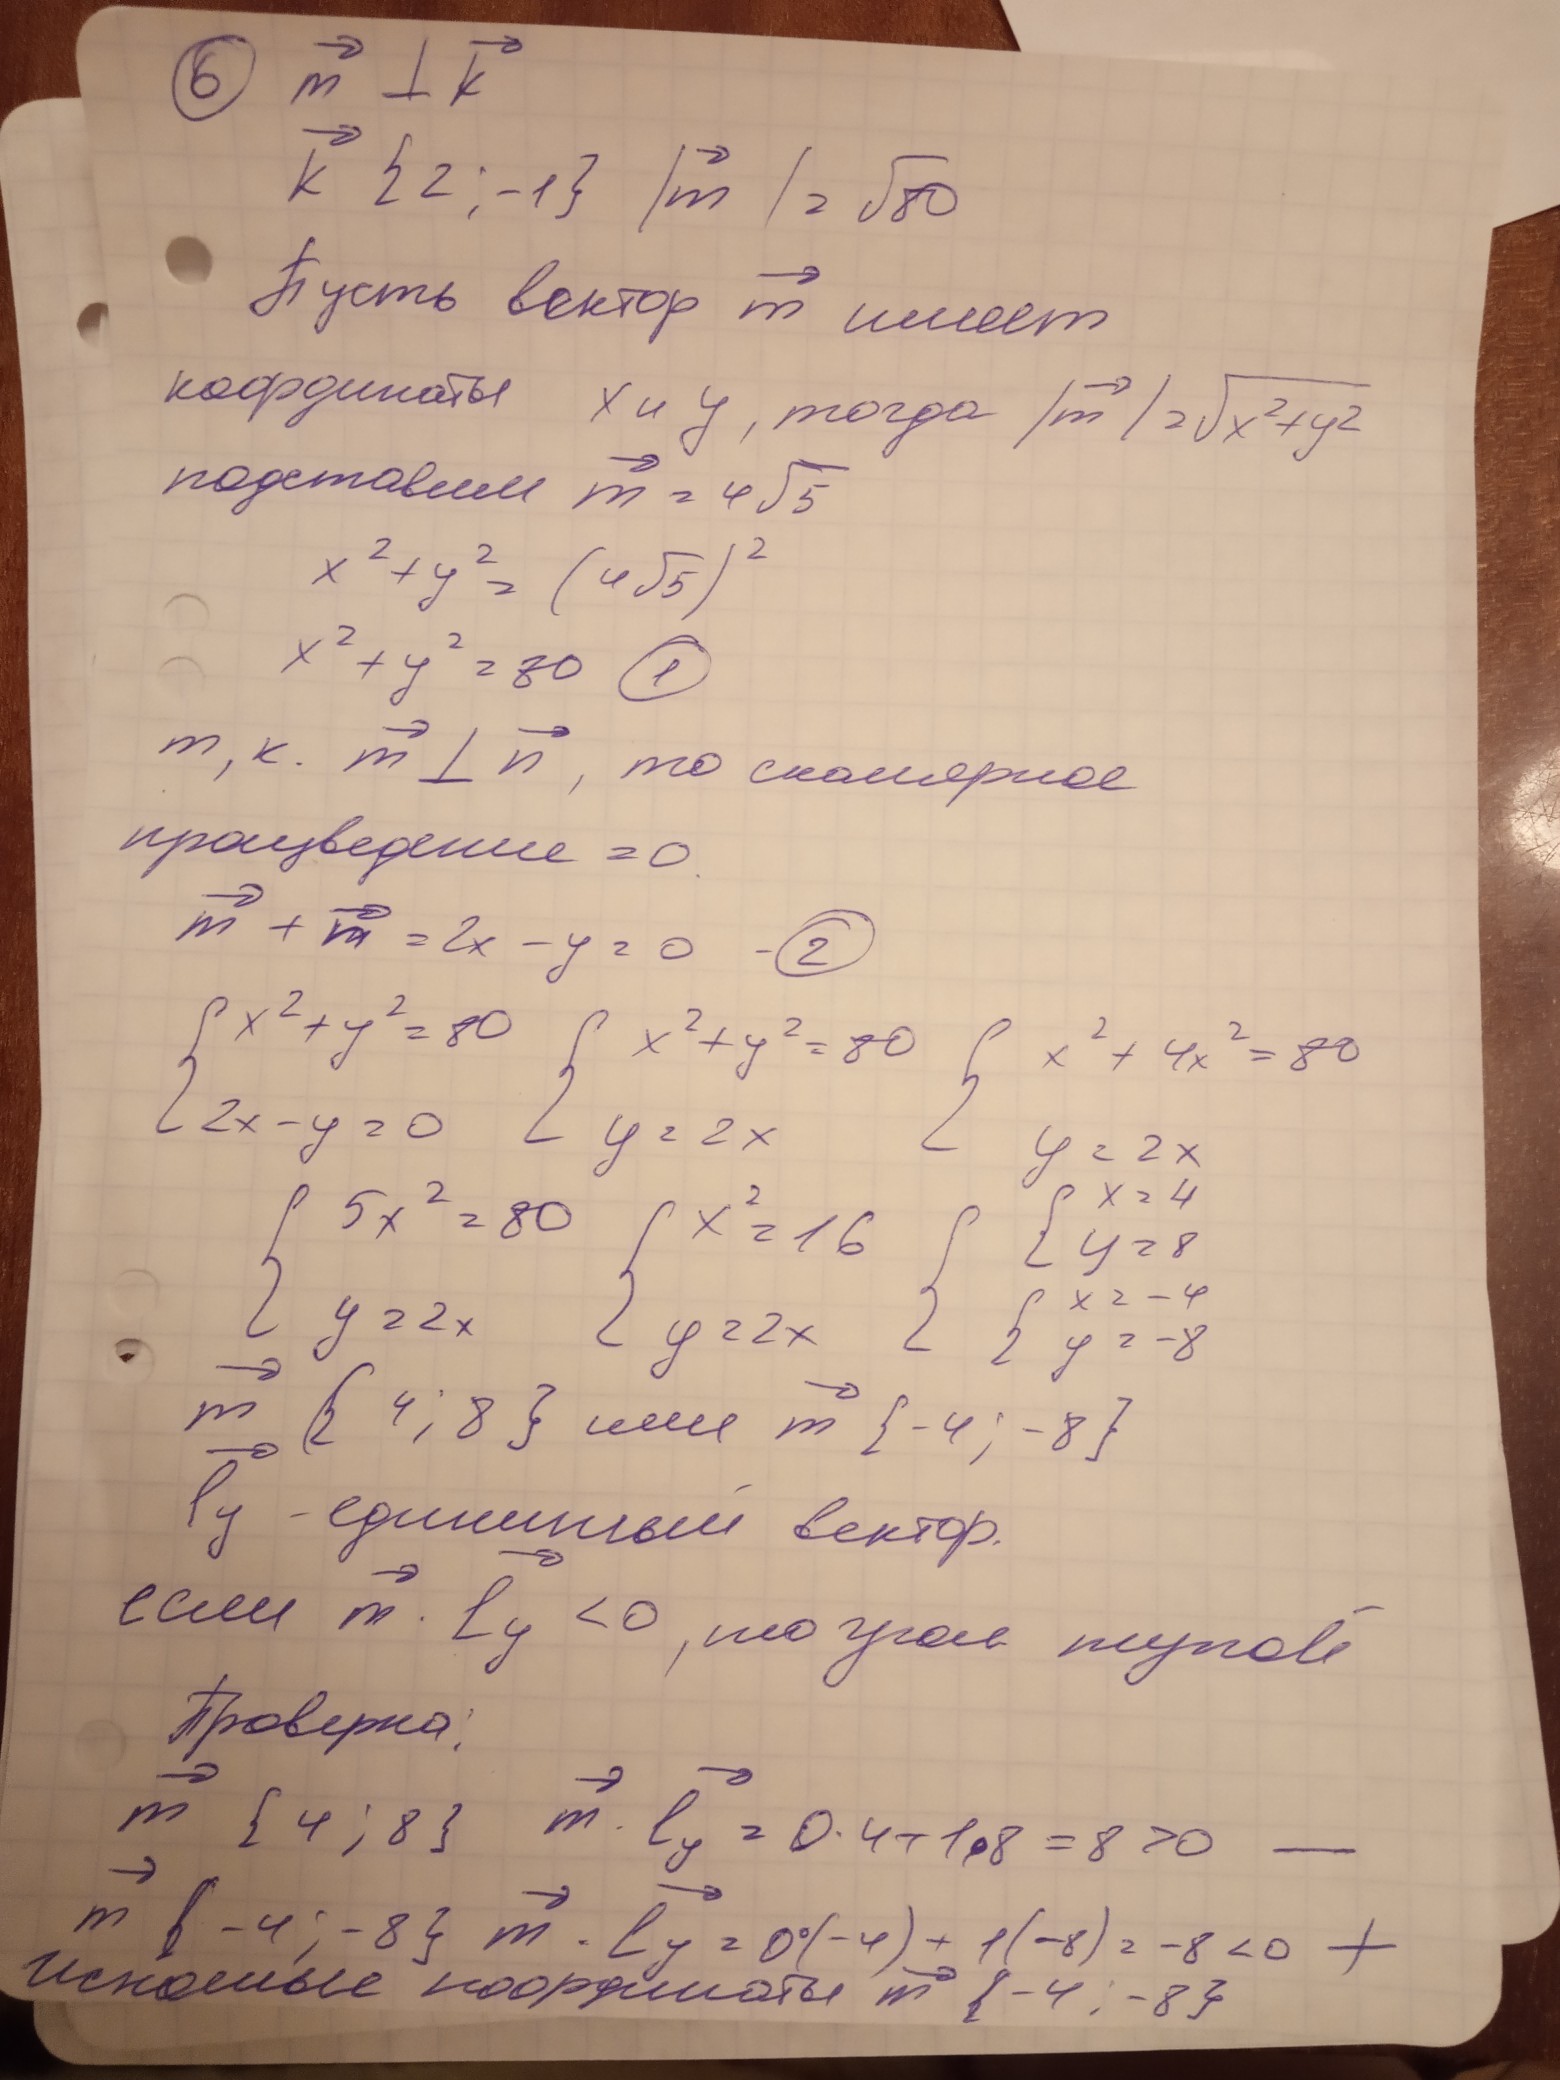 6 m⃗ ⊥ k⃗
k⃗ {2 ; -1} |m⃗| = √80
Пусть вектор m⃗ имеет
координаты x и y, тогда |m⃗| = √x²+y²
подставим m⃗ = 4√5
x² + y² = (4√5)²
x² + y² = 80 1
т, к. m⃗ ⊥ n⃗, то скалярное
произведение = 0.
m⃗ + m⃗ = 2x - y = 0 - 2
{ x² + y² = 80 { x² + y² = 80 { x² + 4x² = 80
2x - y = 0 y = 2x y = 2x
{ 5x² = 80 { x² = 16 { { x = 4
y = 8
y = 2x y = 2x { x = -4
y = -8
m⃗ { 4 ; 8 } или m⃗ {-4 ; -8}
l⃗y - единичный вектор.
если m⃗ · l⃗y < 0, то угол тупой
Проверка:
m⃗ {4 ; 8} m⃗ · l⃗y = 0·4+1·8 = 8 > 0 —
m⃗ {-4 ; -8} m⃗ · l⃗y = 0·(-4) + 1(-8) = -8 < 0 +
искомые координаты m⃗ {-4 ; -8}